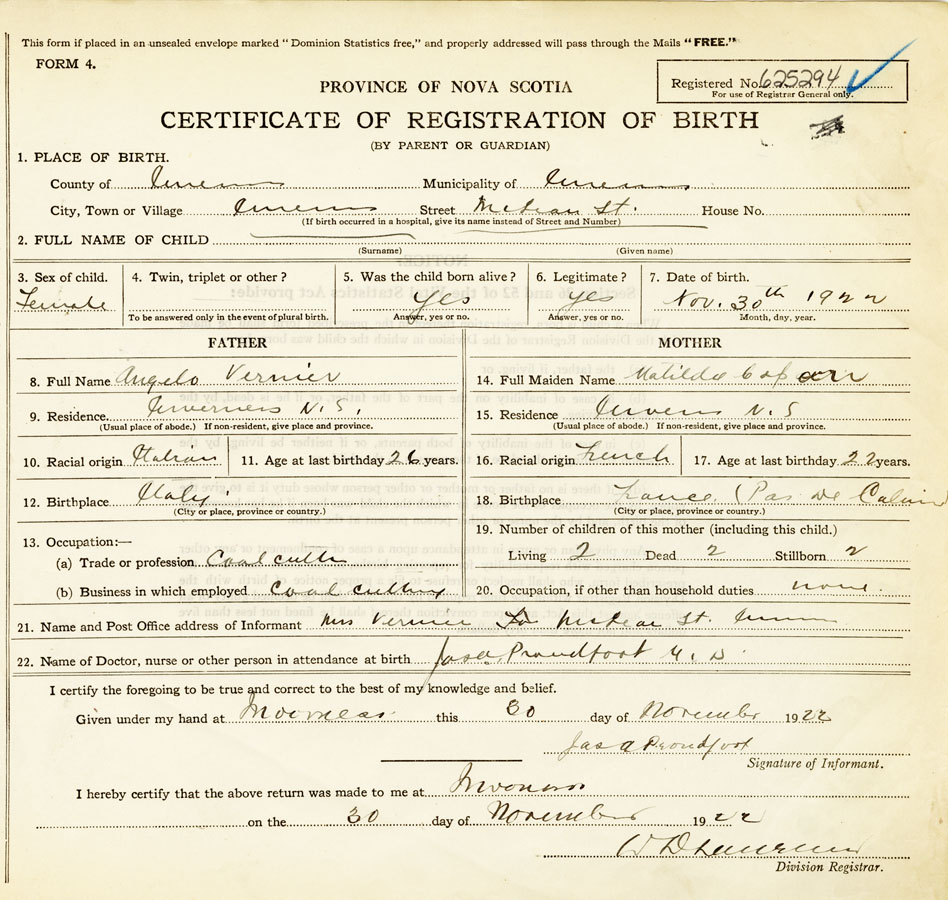 This form if placed in an unsealed envelope marked "Dominion Statistics free," and properly addressed will pass through the Mails "FREE."
FORM 4.
Registered No. 625294
For use of Registrar General only.
PROVINCE OF NOVA SCOTIA
CERTIFICATE OF REGISTRATION OF BIRTH
(BY PARENT OR GUARDIAN)
1. PLACE OF BIRTH.
County of Municipality of
City, Town or Village Street McLean St. House No.
(If birth occurred in a hospital, give its name instead of Street and Number)
2. FULL NAME OF CHILD
(Surname) (Given name)
3. Sex of child. 4. Twin, triplet or other? 5. Was the child born alive? 6. Legitimate? 7. Date of birth.
Female Yes Yes Nov. 30th 1922
To be answered only in the event of plural birth. Answer, yes or no. Answer, yes or no. Month, day, year.
FATHER MOTHER
8. Full Name Angelo Vernier 14. Full Maiden Name Matilda
9. Residence Inverness N.S. 15. Residence N.S
(Usual place of abode.) If non-resident, give place and province. (Usual place of abode.) If non-resident, give place and province.
10. Racial origin Italian 11. Age at last birthday 26 years. 16. Racial origin French 17. Age at last birthday 22 years.
12. Birthplace Italy 18. Birthplace France (Pas De
(City or place, province or country.) (City or place, province or country.)
13. Occupation:— 19. Number of children of this mother (including this child.)
(a) Trade or profession Coal cutter Living 2 Dead 2 Stillborn 2
(b) Business in which employed Coal cutting 20. Occupation, if other than household duties none.
21. Name and Post Office address of Informant Mrs Vernier McLean St.
22. Name of Doctor, nurse or other person in attendance at birth Jas a. Proudfoot M.D.
I certify the foregoing to be true and correct to the best of my knowledge and belief.
Given under my hand at Inverness this 30 day of November 1922
Jas a Proudfoot
Signature of Informant.
I hereby certify that the above return was made to me at Inverness
on the 30 day of November 1922
Division Registrar.